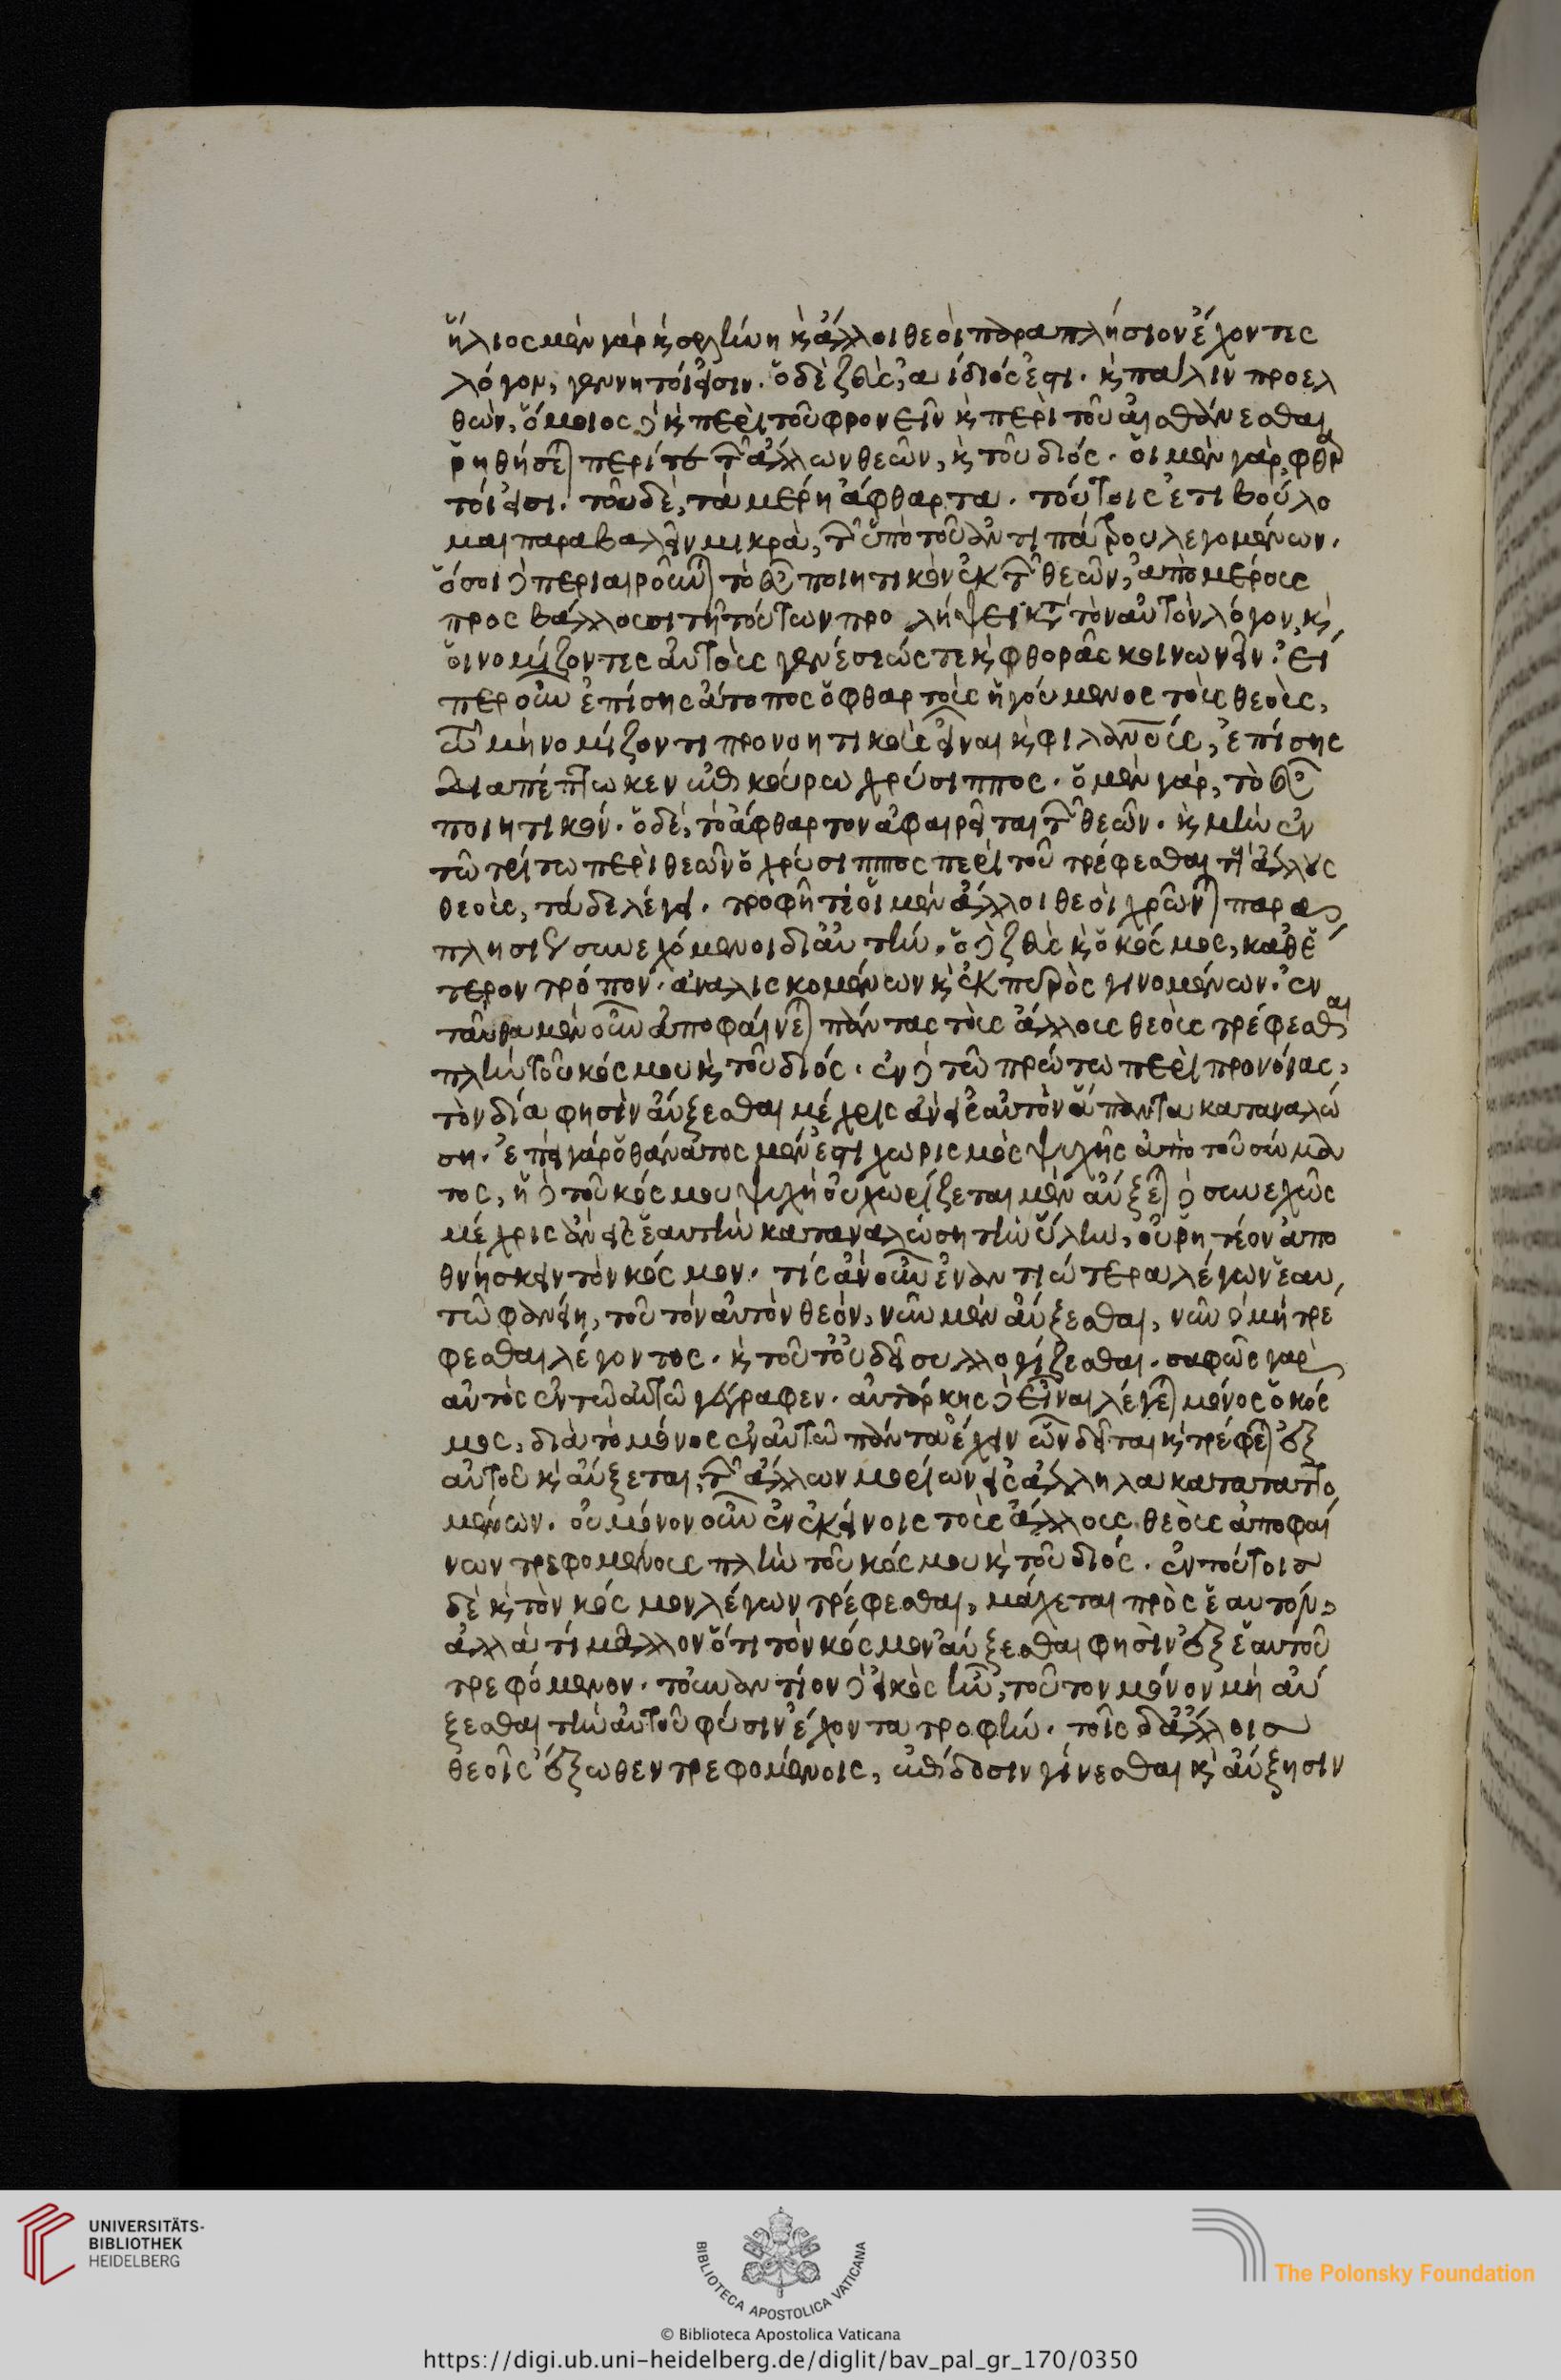 ἥλιος μὲν γὰρ κ̀ σελήνη κ̀ ἄλλοι θεοὶ παραπλήσιον ἔχοντες
λόγον, γεννητοί εἰσιν. ὁ δὲ ζεὺς, ἀίδιός ἐστι. κ̀ πάλιν προελ
θὼν, ὅμοιος δὲ κ̀ περὶ τοῦ φρονεῖν κ̀ περὶ τοῦ αἰσθάνεσθαι
ῥηθήσεται περί τε τῶν ἄλλων θεῶν, κ̀ τοῦ διός. οἱ μὲν γὰρ, φθαρ
τοί εἰσι. τοῦ δὲ, τὰ μέρη ἄφθαρτα. τούτοις ἔτι βούλο
μαι παραβαλεῖν μικρὰ, τῶν ὑπὸ τοῦ ἀντιπάτρου λεγομένων.
ὅσοι δὲ περιαιροῦνται τὸ εὖ ποιητικὸν ἐκ τῶν θεῶν, ἀπὸ μέρους
προσβάλλουσι τῇ τούτων προλήψει κατὰ τὸν αὐτὸν λόγον, κ̀
οἱ νομίζοντες αὐτοὺς γενέσεώς τε κ̀ φθορᾶς κοινωνεῖν. εἴ
περ οὖν ἐπίσης ἄτοπος ὁ φθαρτοὺς ἡγούμενος τοὺς θεοὺς,
τῶ μὴ νομίζοντι προνοητικοὺς εἶναι κ̀ φιλανους, ἐπίσης
διαπέπτωκεν ἐπικούρω χρύσιππος. ὁ μὲν γὰρ, τὸ εὖ
ποιητικόν. ὁ δὲ, τὸ ἄφθαρτον ἀφαιρεῖται τῶν θεῶν. κ̀ μὴν ἐν
τῶ τρίτω περὶ θεῶν ὁ χρύσιππος περὶ τοῦ τρέφεσθαι τοὺς ἄλλους
θεοὺς, τάδε λέγει. τροφῇ τε οἱ μὲν ἄλλοι θεοὶ χρῶνται παρα
πλησίως συνεχόμενοι δι' αὐτήν. ὁ δὲ ζεὺς κ̀ ὁ κόσμος, καθ' ἕ
τερον τρόπον. ἀναλισκομένων κ̀ ἐκ πυρὸς γινομένων. ἐν
ταῦθα μὲν οὖν ἀποφαίνεται πάντας τοὺς ἄλλους θεοὺς τρέφεσθαι
πλὴν τοῦ κόσμου κ̀ τοῦ διός. ἐν δὲ τῶ πρώτω περὶ προνοίας,
τὸν δία φησὶν αὔξεσθαι μέχρις ἂν εἰς αὑτὸν ἅπαντα καταναλώ
ση. ἐπεὶ γὰρ ὁ θάνατος μέν ἐστι χωρισμὸς ψυχῆς ἀπὸ τοῦ σώμα
τος, ἡ δὲ τοῦ κόσμου ψυχὴ οὐ χωρίζεται μὲν αὔξεται δὲ συνεχῶς
μέχρις ἂν εἰς ἑαυτὴν καταναλώση τὴν ὕλην, οὐ ῥητέον ἀπο
θνήσκειν τὸν κόσμον. τίς ἂν οὖν ἐναντιώτερα λέγων ἑαυ
τῶ φανείη, τοῦ τὸν αὐτὸν θεὸν, νῦν μὲν αὔξεσθαι, νῦν δὲ μὴ τρέ
φεσθαι λέγοντος. κ̀ τοῦτο οὐ δεῖ συλλογίζεσθαι. σαφῶς γὰρ
αὐτὸς ἐν τῶ αὐτῶ γέγραφεν. αὐτάρκης δὲ εἶναι λέγεται μόνος ὁ κόσ
μος, διὰ τὸ μόνος ἐν αὑτῶ πάντα ἔχειν ὧν δεῖται κ̀ τρέφεται ἐξ
αὑτοῦ κ̀ αὔξεται, τῶν ἄλλων μορίων εἰς ἄλληλα καταταττο
μένων. οὐ μόνον οὖν ἐν ἐκείνοις τοὺς ἄλλους θεοὺς ἀποφαί
νων τρεφομένους πλὴν τοῦ κόσμου κ̀ τοῦ διός. ἐν τούτοις
δὲ κ̀ τὸν κόσμον λέγων τρέφεσθαι, μάχεται πρὸς ἑαυτόν,
ἀλλὰ τί μᾶλλον ὅτι τὸν κόσμον αὔξεσθαι φησὶν ἐξ ἑαυτοῦ
τρεφόμενον. τοὐναντίον δὲ εἰκὸς ἦν, τοῦτον μόνον μὴ αὔ
ξεσθαι τὴν αὑτοῦ φύσιν ἔχοντα τροφήν. τοῖς δ' ἄλλοις
θεοῖς ἔξωθεν τρεφομένοις, ἐπίδοσιν γίνεσθαι κ̀ αὔξησιν
UNIVERSITÄTS-
BIBLIOTHEK
HEIDELBERG
BIBLIOTECA APOSTOLICA VATICANA
The Polonsky Foundation
© Biblioteca Apostolica Vaticana
https://digi.ub.uni-heidelberg.de/diglit/bav_pal_gr_170/0350